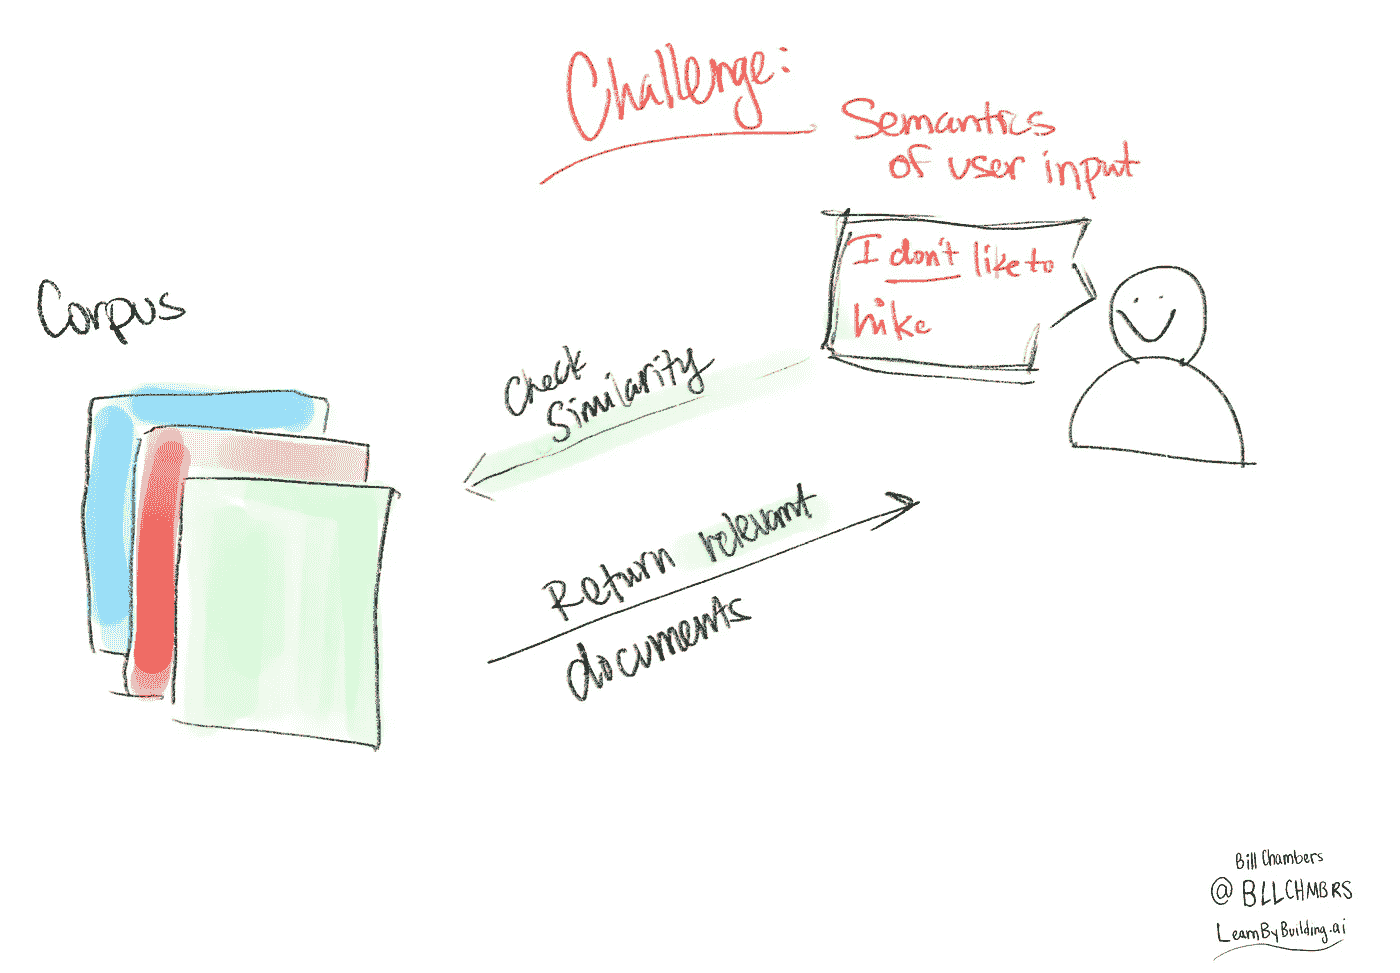 Challenge:
Semantics
of user input
I don't like to
hike
Corpus
Check
Similarity
Return relevant
documents
Bill Chambers
@ BLLCHMBRS
LearnByBuilding.ai